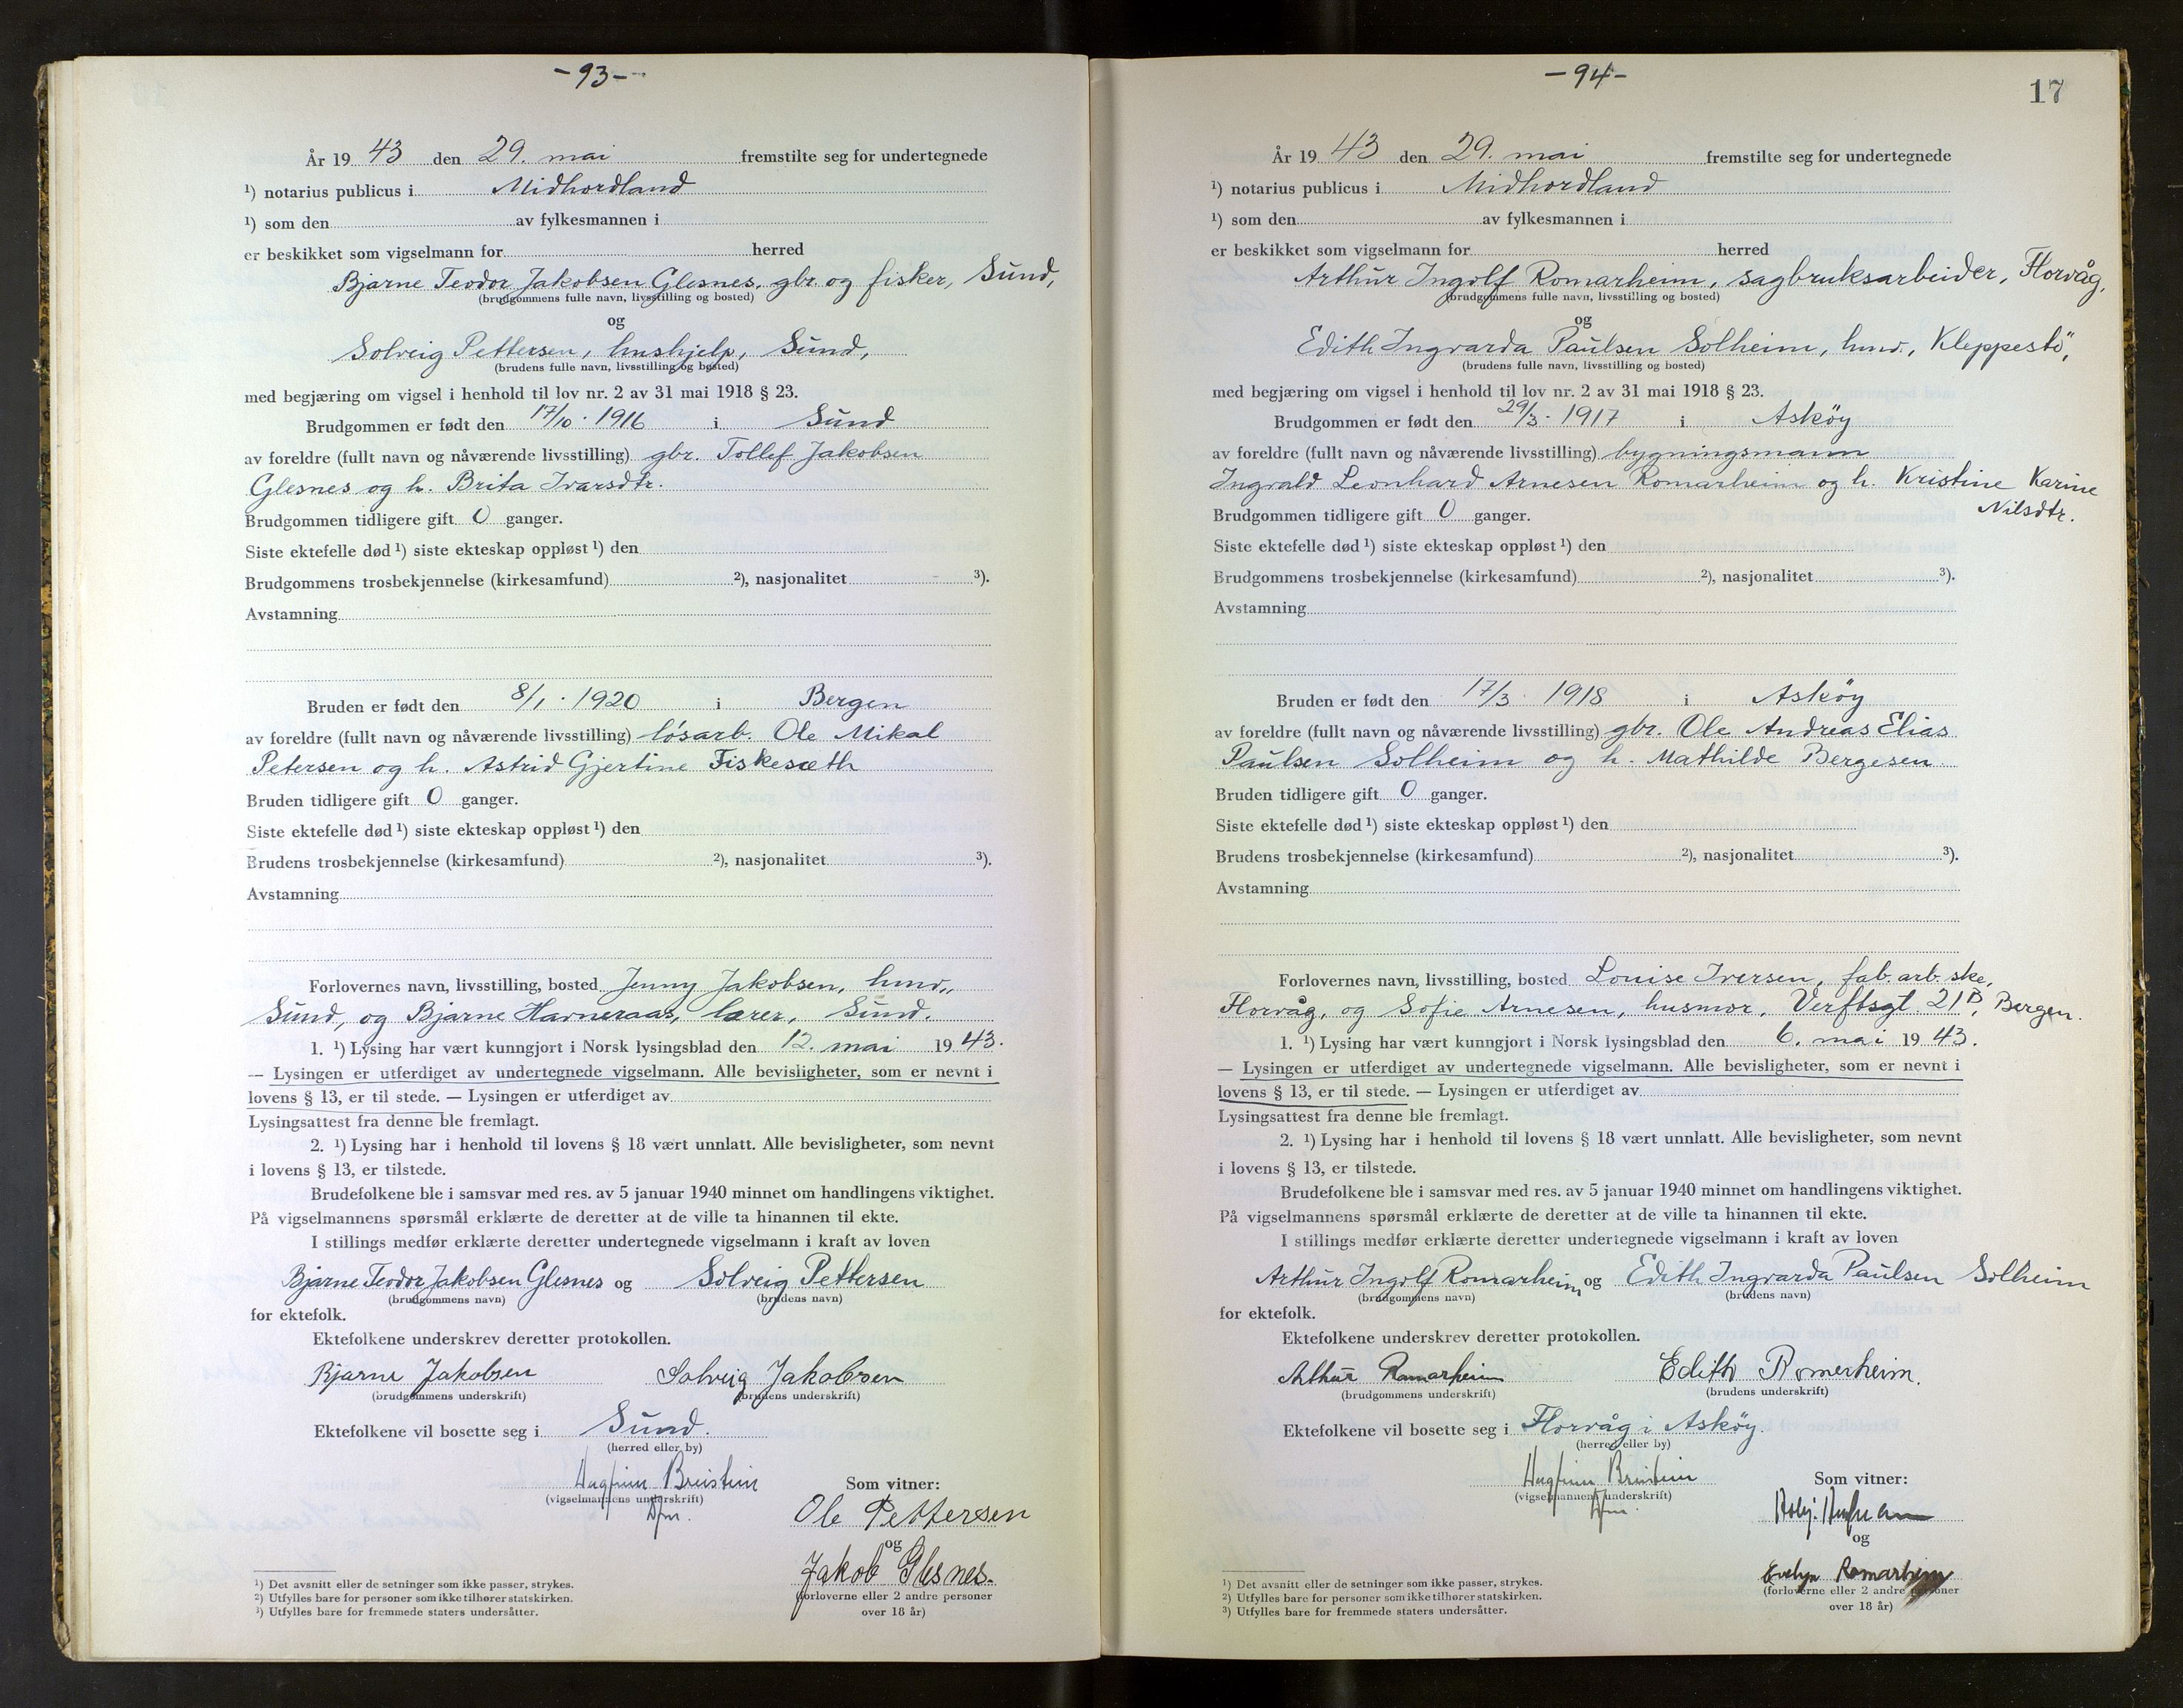 -93-
År 19 43 den 29. mai fremstilte seg for undertegnede
¹) notarius publicus i Midhordland
¹) som den av fylkesmannen i
er beskikket som vigselmann for herred
Bjarne Teodor Jakobsen Glesnes, gbr. og fisker, Sund,
(brudgommens fulle navn, livsstilling og bosted)
og
Solveig Pettersen, hushjelp, Sund,
(brudens fulle navn, livsstilling og bosted)
med begjæring om vigsel i henhold til lov nr. 2 av 31 mai 1918 § 23.
Brudgommen er født den 17/10. 1916 i Sund
av foreldre (fullt navn og nåværende livsstilling) gbr. Tollef Jakobsen
Glesnes og h. Brita Ivarsdtr.
Brudgommen tidligere gift 0 ganger.
Siste ektefelle død ¹) siste ekteskap oppløst ¹) den
Brudgommens trosbekjennelse (kirkesamfund) ²), nasjonalitet ³).
Avstamning
Bruden er født den 8/1. 1920 i Bergen
av foreldre (fullt navn og nåværende livsstilling) lósarb. Ole Mikal
Petersen og h. Astrid Gjertine Fiskesæth
Bruden tidligere gift 0 ganger.
Siste ektefelle død ¹) siste ekteskap oppløst ¹) den
Brudens trosbekjennelse (kirkesamfund) ²), nasjonalitet ³).
Avstamning
Forlovernes navn, livsstilling, bosted Jenny Jakobsen, hmv.,
Sund, og Bjarne Havneraas, lærer, Sund.
1. ¹) Lysing har vært kunngjort i Norsk lysingsblad den 12. mai 19 43.
— Lysingen er utferdiget av undertegnede vigselmann. Alle bevisligheter, som er nevnt i
lovens § 13, er til stede. — Lysingen er utferdiget av
Lysingsattest fra denne ble fremlagt.
2. ¹) Lysing har i henhold til lovens § 18 vært unnlatt. Alle bevisligheter, som nevnt
i lovens § 13, er tilstede.
Brudefolkene ble i samsvar med res. av 5 januar 1940 minnet om handlingens viktighet.
På vigselmannens spørsmål erklærte de deretter at de ville ta hinannen til ekte.
I stillings medfør erklærte deretter undertegnede vigselmann i kraft av loven
Bjarne Teodor Jakobsen Glesnes og Solveig Pettersen
(brudgommens navn) (brudens navn)
for ektefolk.
Ektefolkene underskrev deretter protokollen.
Bjarne Jakobsen Solveig Jakobsen
(brudgommens underskrift) (brudens underskrift)
Ektefolkene vil bosette seg i Sund.
(herred eller by)
Hagfinn Breistein
(vigselmannens underskrift)
Dfm.
Som vitner:
Ole Pettersen
og
Jakob Glesnes.
(forloverne eller 2 andre personer
over 18 år)
¹) Det avsnitt eller de setninger som ikke passer, strykes.
²) Utfylles bare for personer som ikke tilhører statskirken.
³) Utfylles bare for fremmede staters undersåtter.
-94-
17
År 19 43 den 29. mai fremstilte seg for undertegnede
¹) notarius publicus i Midhordland
¹) som den av fylkesmannen i
er beskikket som vigselmann for herred
Arthur Ingolf Romarheim, sagbruksarbeider, Florvåg,
(brudgommens fulle navn, livsstilling og bosted)
og
Edith Ingvarda Paulsen Solheim, hmv., Kleppestö,
(brudens fulle navn, livsstilling og bosted)
med begjæring om vigsel i henhold til lov nr. 2 av 31 mai 1918 § 23.
Brudgommen er født den 29/3. 1917 i Asköy
av foreldre (fullt navn og nåværende livsstilling) bygningsmann
Ingvald Leonhard Arnesen Romarheim og h. Kristine Karine
Nilsdtr.
Brudgommen tidligere gift 0 ganger.
Siste ektefelle død ¹) siste ekteskap oppløst ¹) den
Brudgommens trosbekjennelse (kirkesamfund) ²), nasjonalitet ³).
Avstamning
Bruden er født den 17/3. 1918 i Asköy
av foreldre (fullt navn og nåværende livsstilling) gbr. Ole Andreas Elias
Paulsen Solheim og h. Mathilde Bergesen
Bruden tidligere gift 0 ganger.
Siste ektefelle død ¹) siste ekteskap oppløst ¹) den
Brudens trosbekjennelse (kirkesamfund) ²), nasjonalitet ³).
Avstamning
Forlovernes navn, livsstilling, bosted Louise Iversen, fab.arb.ske,
Florvåg, og Sofie Arnesen, husmor, Verftsgt. 21B, Bergen.
1. ¹) Lysing har vært kunngjort i Norsk lysingsblad den 6. mai 19 43.
— Lysingen er utferdiget av undertegnede vigselmann. Alle bevisligheter, som er nevnt i
lovens § 13, er til stede. — Lysingen er utferdiget av
Lysingsattest fra denne ble fremlagt.
2. ¹) Lysing har i henhold til lovens § 18 vært unnlatt. Alle bevisligheter, som nevnt
i lovens § 13, er tilstede.
Brudefolkene ble i samsvar med res. av 5 januar 1940 minnet om handlingens viktighet.
På vigselmannens spørsmål erklærte de deretter at de ville ta hinannen til ekte.
I stillings medfør erklærte deretter undertegnede vigselmann i kraft av loven
Arthur Ingolf Romarheim og Edith Ingvarda Paulsen Solheim
(brudgommens navn) (brudens navn)
for ektefolk.
Ektefolkene underskrev deretter protokollen.
Arthur Romarheim Edith Romerheim.
(brudgommens underskrift) (brudens underskrift)
Ektefolkene vil bosette seg i Florvåg i Asköy.
(herred eller by)
Hagfinn Breistein
(vigselmannens underskrift)
Dfm
Som vitner:
og
Evelyn Romarheim
(forloverne eller 2 andre personer
over 18 år)
¹) Det avsnitt eller de setninger som ikke passer, strykes.
²) Utfylles bare for personer som ikke tilhører statskirken.
³) Utfylles bare for fremmede staters undersåtter.